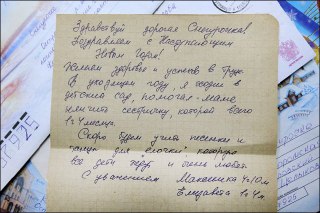 Здравствуй дорогая Снегурочка!
Поздравляем с Наступающим
Новым Годом!
Желаем здоровья и успехов в труде
В уходящем году, я ходил в
детский сад, помогал маме
нянчить сестричку, которой всего
1 г 4 месяца.
Скоро будем учить песенки и
танцы для "елочки" которую
все дети ждут и очень любят.
С уважением Максимка 4 г 10 м
Елизавета 1 г 4 м